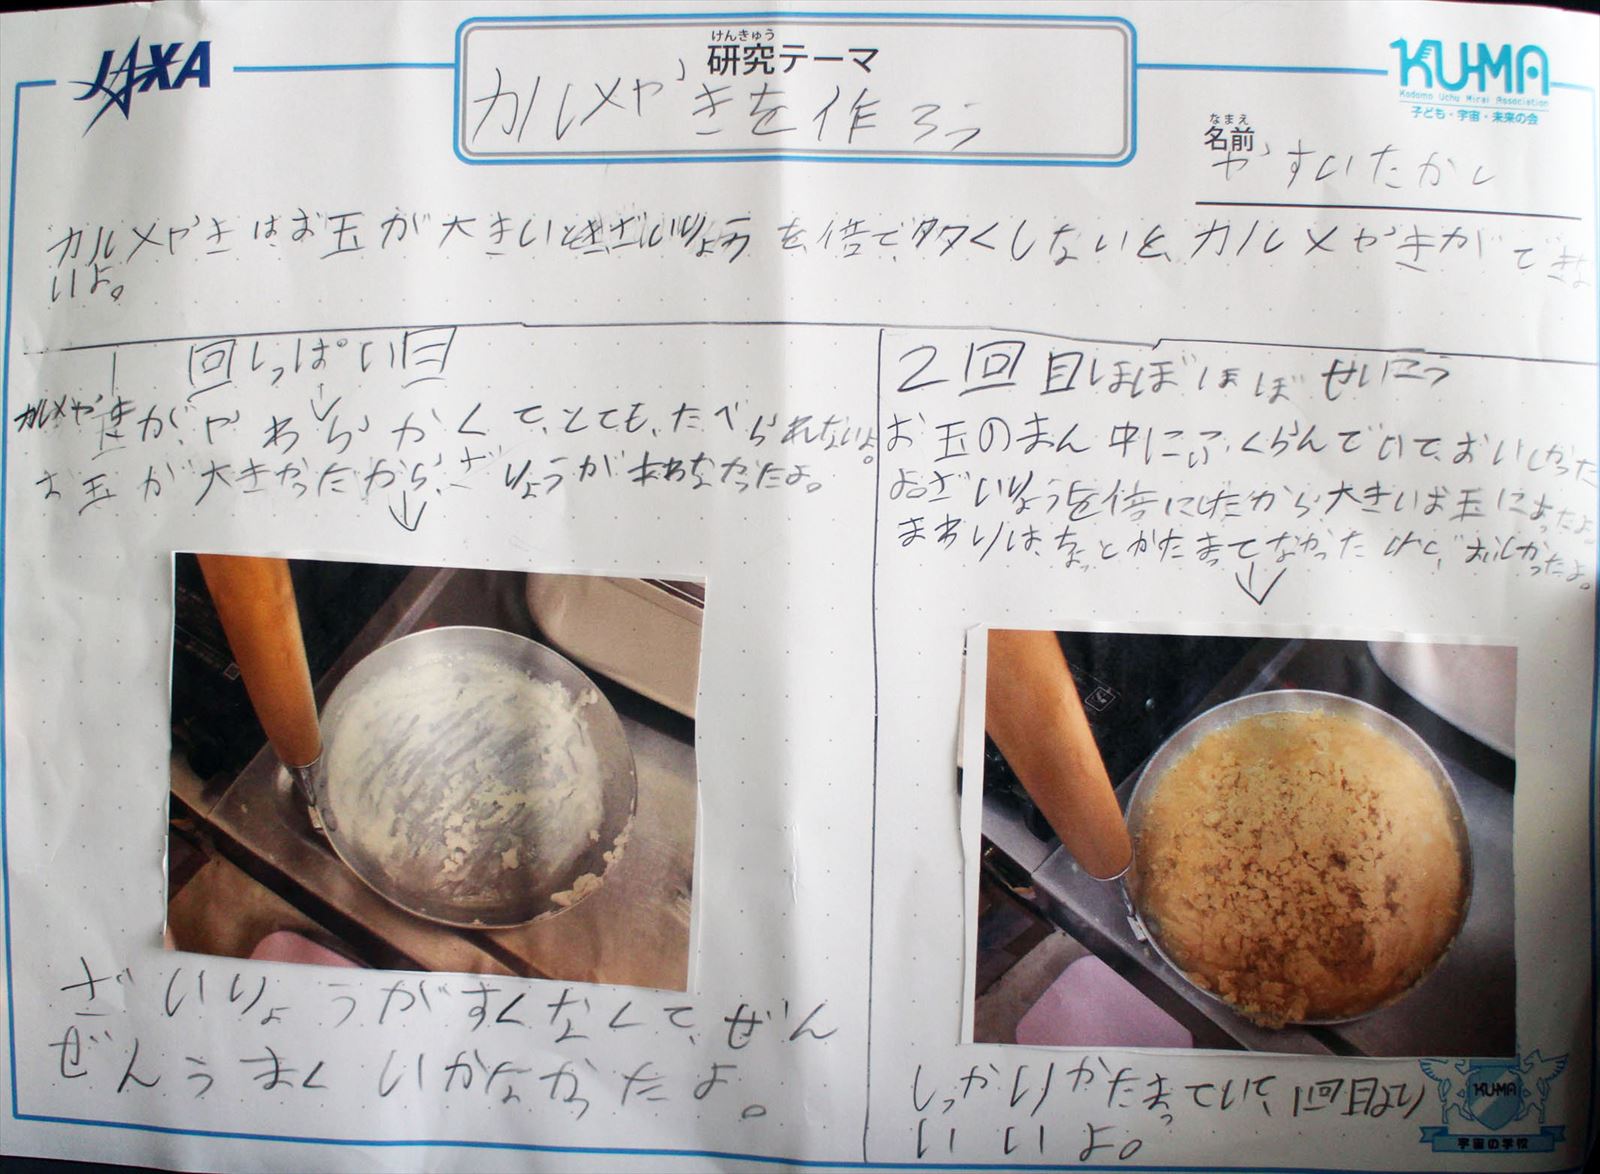 JAXA
けんきゅう
研究テーマ
カルメやきを作ろう
KU-MA
Kodomo Uchu Mirai Association
子ども・宇宙・未来の会
なまえ
名前
やすいたかし
カルメやきはお玉が大きいときざいりょうを倍で多くしないと、カルメやきができな
いよ。
1回しっぱい目
カルメやきがやわらかくて、とても、たべられないよ。
お玉が大きかったから、ざいりょうがあわなかったよ。
ざいりょうがすくなくて、ぜん
ぜんうまくいかなかったよ。
2回目ほぼほぼせいこう
お玉のまん中にふくらんでいて、おいしかった
よ。ざいりょうを倍にしたから大きいお玉にあったよ。
まわりは、ちょっとかたまってなかったけど、おいしかったよ。
しっかりかたまっていて、1回目より
いいよ。
KU-MA
宇宙の学校